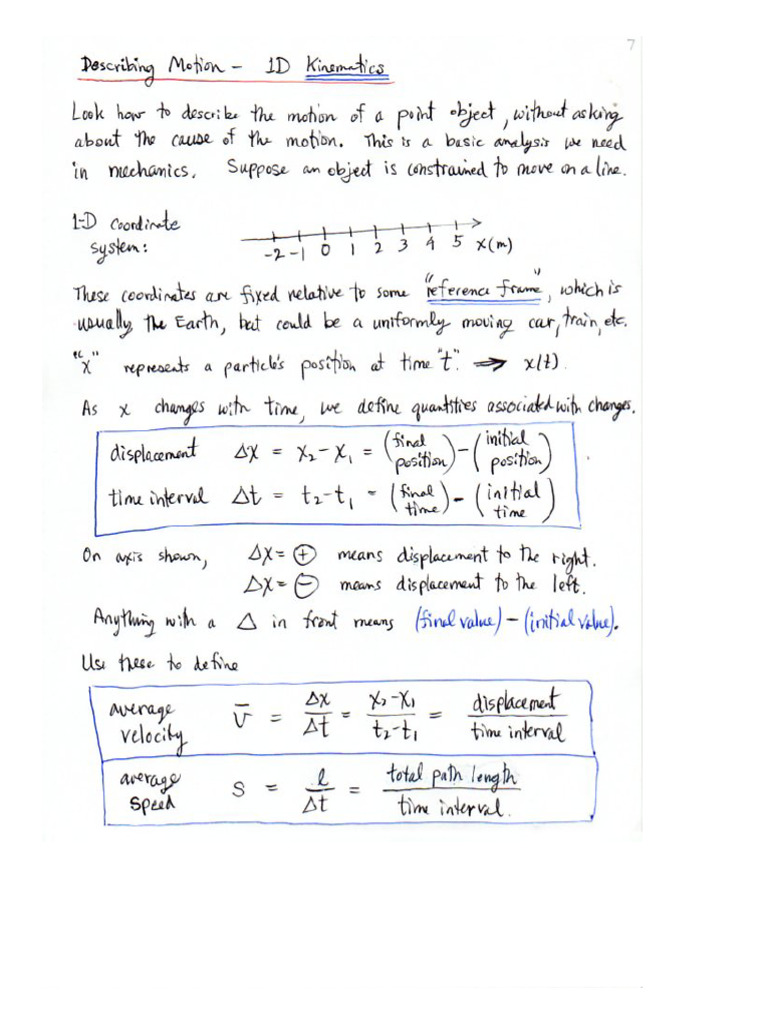 7
Describing Motion - 1D Kinematics
Look how to describe the motion of a point object, without asking
about the cause of the motion. This is a basic analysis we need
in mechanics. Suppose an object is constrained to move on a line.
1-D coordinate
system:
-2 -1 0 1 2 3 4 5 x(m)
These coordinates are fixed relative to some "reference frame", which is
usually the Earth, but could be a uniformly moving car, train, etc.
"x" represents a particle's position at time "t". → x(t).
As x changes with time, we define quantities associated with changes.
displacement Δx = x₂-x₁ = (final position) - (initial position)
time interval Δt = t₂-t₁ = (final time) - (initial time)
On axis shown, Δx = ⊕ means displacement to the right.
Δx = ⊖ means displacement to the left.
Anything with a Δ in front means (final value) - (initial value).
Use these to define
average velocity v̄ = Δx/Δt = (x₂-x₁)/(t₂-t₁) = displacement/time interval
average speed s = l/Δt = total path length/time interval.